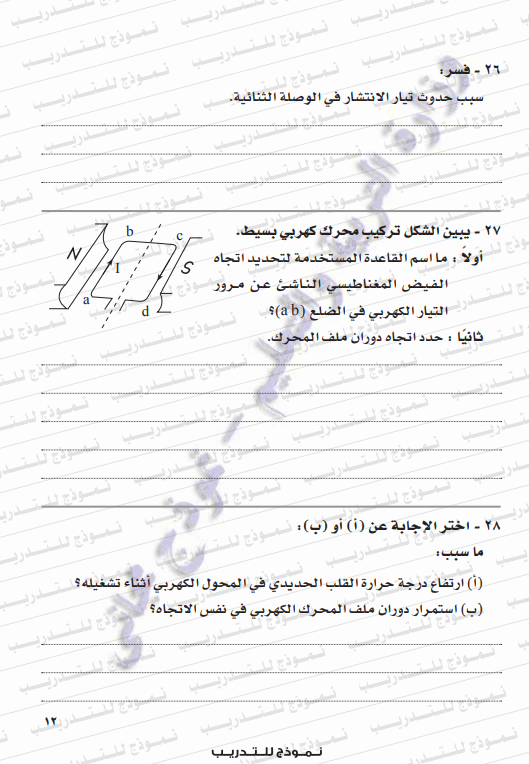 ٢٦ - فسر:
سبب حدوث تيار الانتشار في الوصلة الثنائية.
٢٧ - يبين الشكل تركيب محرك كهربي بسيط.
أولاً : ما اسم القاعدة المستخدمة لتحديد اتجاه
الفيض المغناطيسي الناشئ عن مرور
التيار الكهربي في الضلع (a b)؟
ثانيًا : حدد اتجاه دوران ملف المحرك.
N
b
c
I
S
a
d
٢٨ - اختر الإجابة عن (أ) أو (ب):
ما سبب:
(أ) ارتفاع درجة حرارة القلب الحديدي في المحول الكهربي أثناء تشغيله؟
(ب) استمرار دوران ملف المحرك الكهربي في نفس الاتجاه؟
١٢
نـمـوذج للـتـدريـب